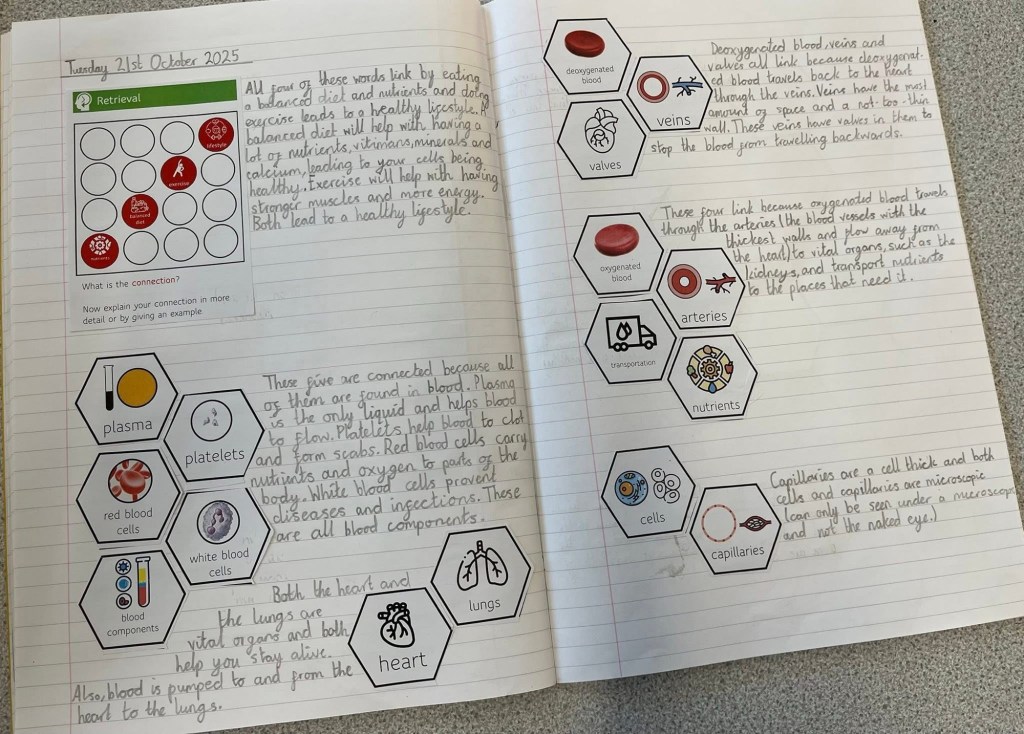 Tuesday 21st October 2025
Retrieval
lifestyle
exercise
balanced
diet
nutrients
What is the connection?
Now explain your connection in more
detail or by giving an example
All four of these words link by eating
a balanced diet and nutrients and doing
exercise leads to a healthy lifestyle. A
balanced diet will help with having a
lot of nutrients, vitimans, minerals and
calcium, leading to your cells being
healthy. Exercise will help with having
stronger muscles and more energy.
Both lead to a healthy lifestyle.
plasma
platelets
red blood
cells
white blood
cells
blood
components
These five are connected because all
of them are found in blood. Plasma
is the only liquid and helps blood
to flow. Platelets help blood to clot
and form scabs. Red blood cells carry
nutrients and oxygen to parts of the
body. White blood cells prevent
diseases and infections. These
are all blood components.
Both the heart and
the lungs are
vital organs and both
help you stay alive.
Also, blood is pumped to and from the
heart to the lungs.
heart
lungs
deoxygenated
blood
veins
valves
Deoxygenated blood, veins and
valves all link because deoxygenat-
ed blood travels back to the heart
through the veins. Veins have the most
amount of space and a not-too-thin
wall. These veins have valves in them to
stop the blood from travelling backwards.
oxygenated
blood
arteries
transportation
nutrients
These four link because oxygenated blood travels
through the arteries (the blood vessels with the
thickest walls and flow away from
the heart) to vital organs, such as the
kidneys, and transport nutrients
to the places that need it.
cells
capillaries
Capillaries are a cell thick and both
cells and capillaries are microscopic
(can only be seen under a microscope
and not the naked eye.)